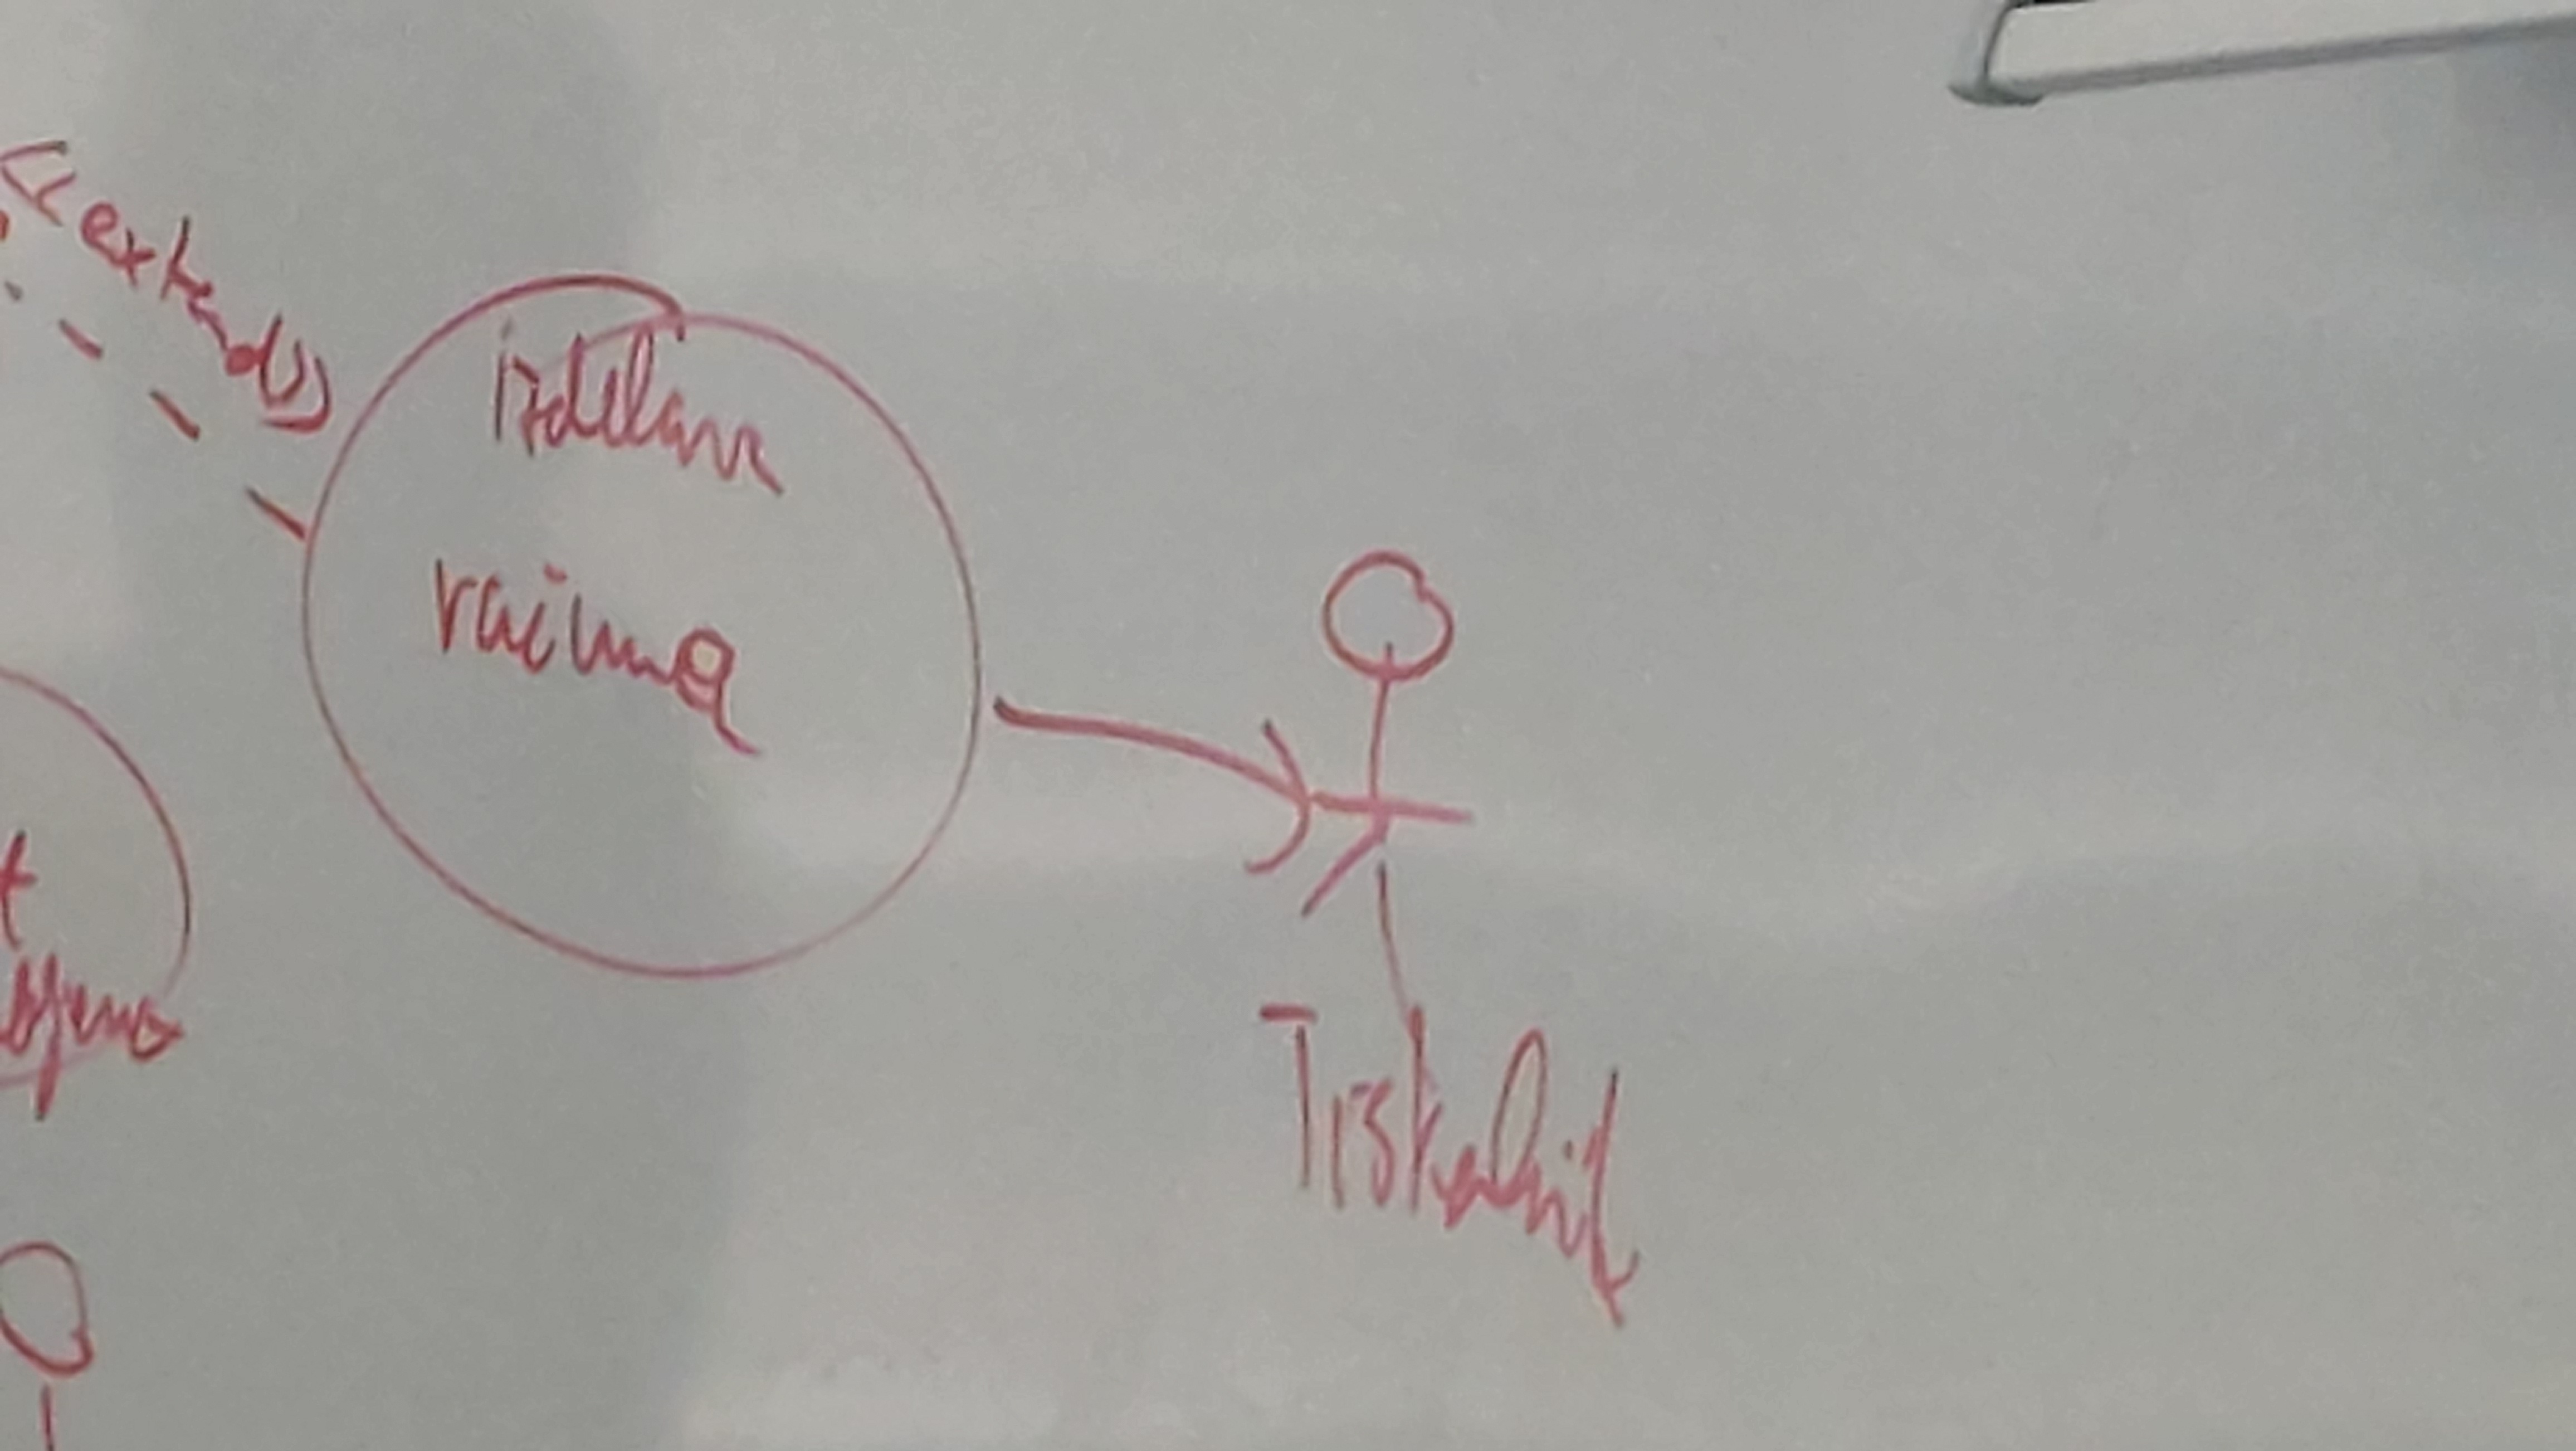 <<extend>>
izdelava
računa
Tiskalnik